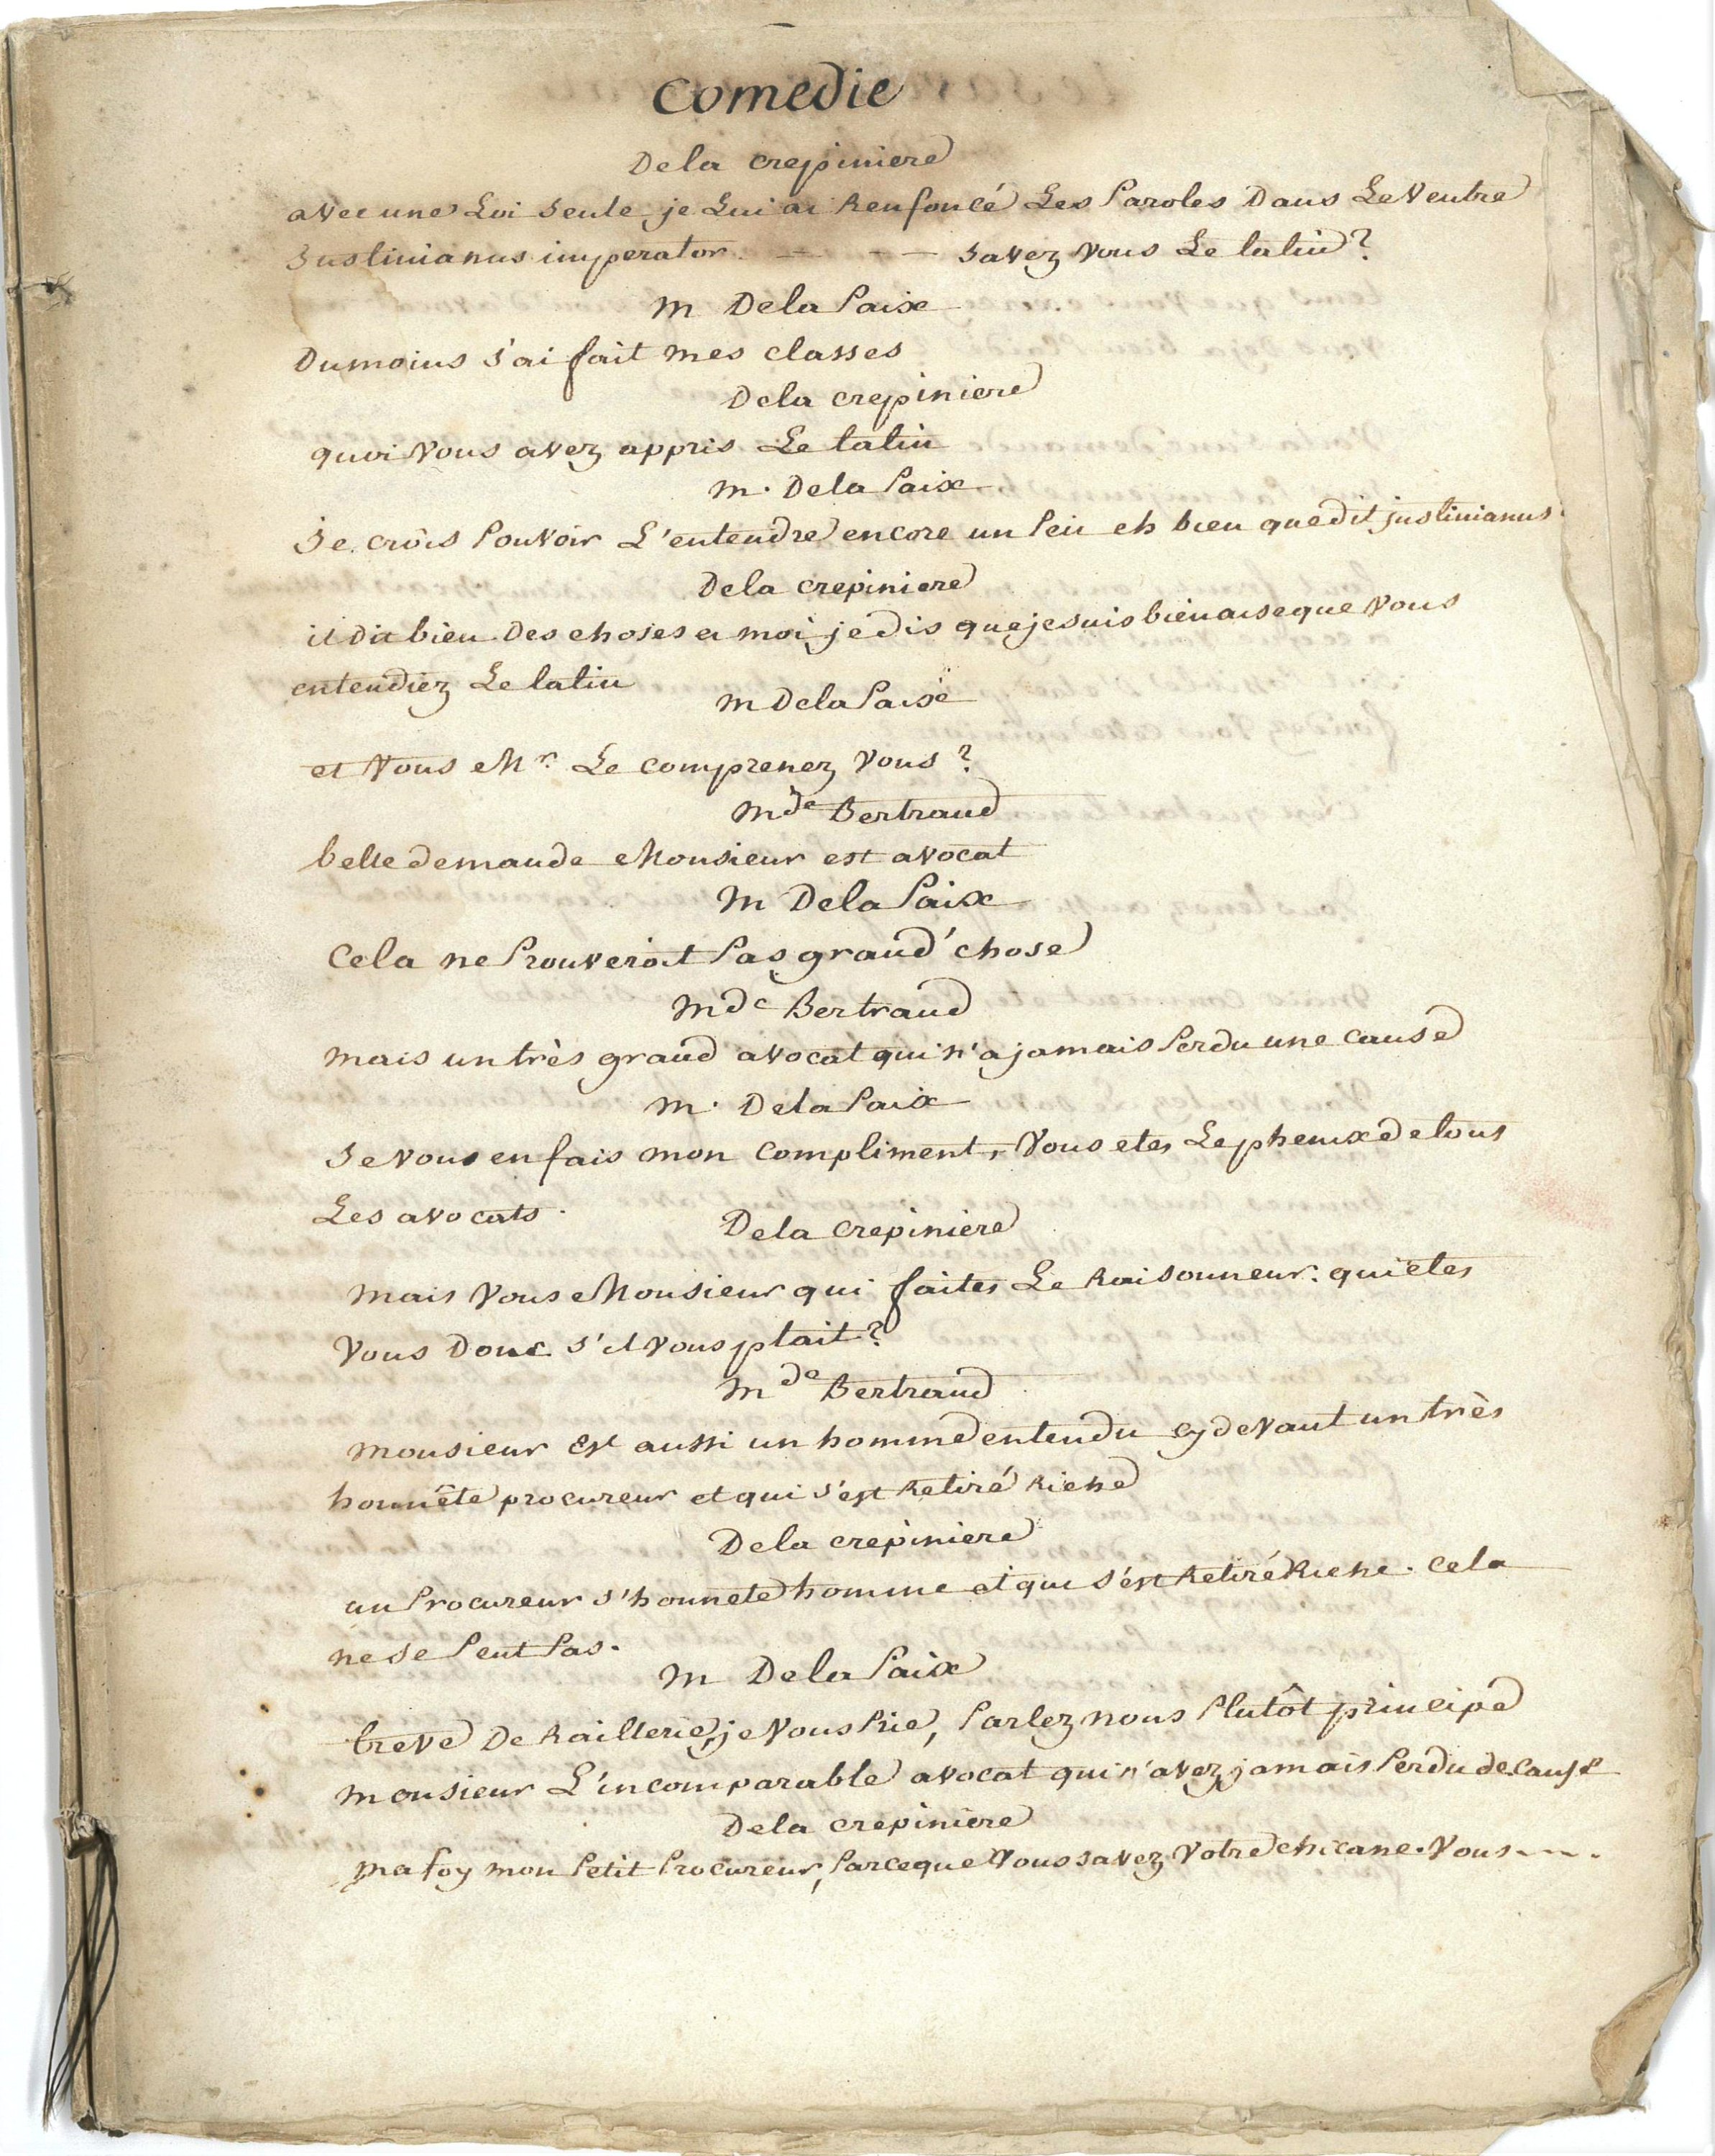 Comedie
De la crepiniere
avec une Loi seule, je Lui ai Renfoncé Les Paroles Dans Le Ventre
Justinianus imperator. — - - — savez vous Le latin?
M De la Paix
Dumoins J'ai fait mes classes
De la crepiniere
quoi Vous avez appris Le latin
M. De la Paix
Je crois Pouvoir L'entendre encore un Peu eh bien que dit justinianus
De la crepiniere
il dit bien Des choses et moi, je dis que je suis bien aise que Vous
entendiez Le latin
M De la Paix
et Vous Mr. Le comprenez Vous?
Mde Bertrand
belle demande Monsieur est avocat
M De la Paix
Cela ne Prouveroit Pas grand'chose
Mde Bertrand
Mais un très grand avocat qui n'a jamais Perdu une cause
M. De la Paix
Je vous en fais mon compliment, Vous etes Le phenix de tous
Les avocats.
De la crepiniere
Mais Vous Monsieur qui faites Le Raisonneur: qui êtes
Vous Donc s'il Vous plait?
Mde Bertrand
Monsieur est aussi un homme entendu cy devant un très
honnête procureur et qui s'est Retiré Riche
De la crepiniere
un Procureur s'honnete homme et qui s'est Retiré Riche. Cela
ne se Peut Pas.
M De la Paix
treve De Raillerie, je Vous Prie, Parlez nous Plutôt principe
Monsieur L'incomparable avocat qui n'avez jamais Perdu de Cause
De la crepiniere
Ma foy mon Petit Procureur, Parceque Vous savez Votre chicane. Vous - - - .